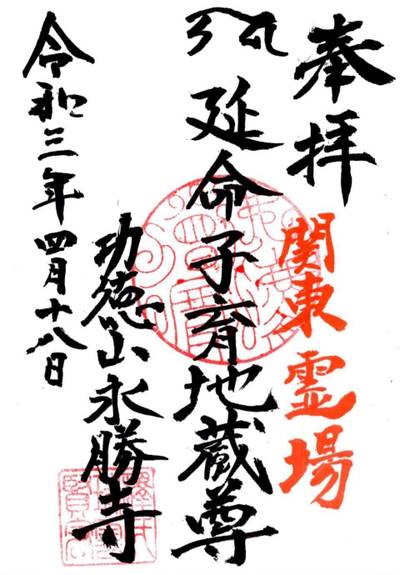 奉拝
関東霊場
延命子育地蔵尊
功徳山永勝寺
令和三年四月十八日